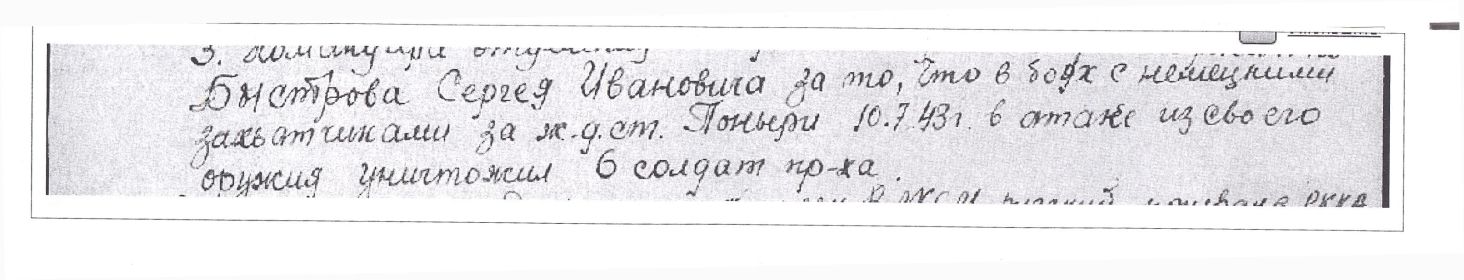 3. Командира
Быстрова Сергея Ивановича за то, что в боях с немецкими
захватчиками за ж.д.ст. Поныри 10.7.43г. в атаке из своего
оружия уничтожил 6 солдат пр-ка.